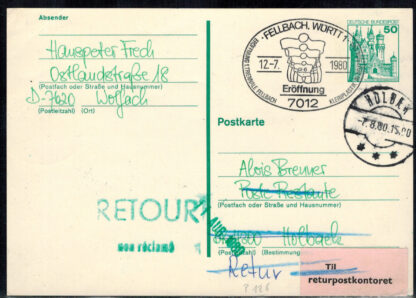 Absender
Hanspeter Frech
Ostlandstraße 18
(Postfach oder Straße und Hausnummer)
D-7620 Wolfach
(Postleitzahl) (Ort)
FELLBACH, WÜRTT 1
12.-7. 1980
Eröffnung
7012
DEUTSCHE BUNDESPOST
50
HOLBÆK
-7.8.80.15.00
Postkarte
Alois Brenner
Poste Restante
(Postfach oder Straße und Hausnummer)
4300 Holbæk
(Postleitzahl) (Bestimmung)
RETOUR
non réclamé
AUG. 1980
Retur
Til
returpostkontoret